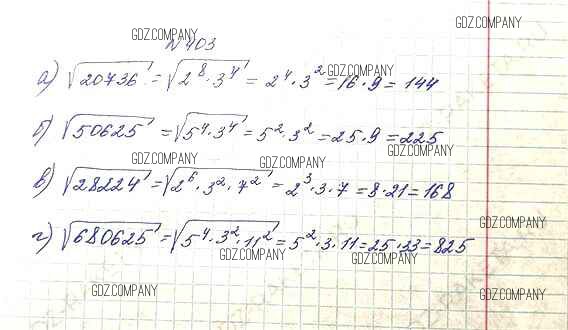 GDZ.COMPANY
GDZ.COMPANY
№403
а) √20736 = √2⁸·3⁴ = 2⁴·3² = 16·9 = 144
GDZ.COMPANY
б) √50625 = √5⁴·3⁴ = 5²·3² = 25·9 = 225
GDZ.COMPANY
GDZ.COMPANY
GDZ.COMPANY
в) √28224 = √2⁶·3²·7² = 2³·3·7 = 8·21 = 168
GDZ.COMPANY
г) √680625 = √5⁴·3²·11² = 5²·3·11 = 25·33 = 825
GDZ.COMPANY
GDZ.COMPANY
GDZ.COMPANY
GDZ.COMPANY